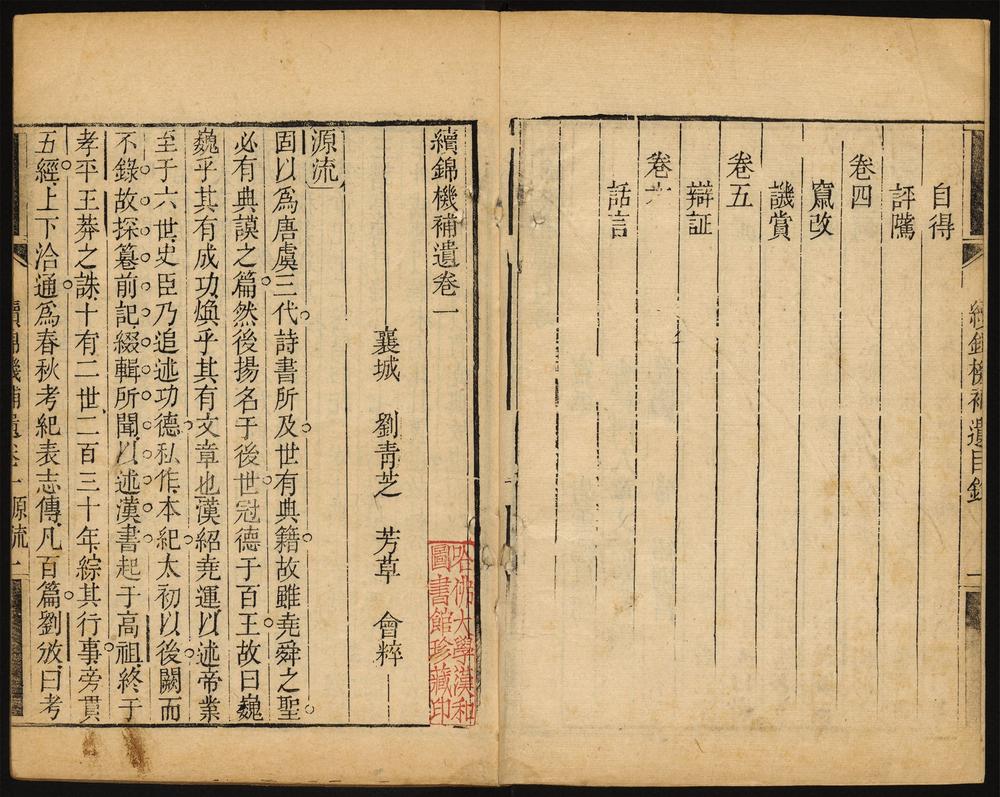 自得
評隲
卷四
竄改
譏賞
卷五
辯証
卷六
話言
續錦機補遺目錄
一
續錦機補遺卷一
襄城 劉青芝 芳草 會粹
源流
固以爲唐虞三代詩書所及世有典籍故雖堯舜之聖
必有典謨之篇然後揚名于後世冠德于百王故曰巍
巍乎其有成功煥乎其有文章也漢紹堯運以述帝業
至于六世史臣乃追述功德私作本紀太初以後闕而
不錄故探簒前記綴輯所聞以述漢書起于高祖終于
孝平王莽之誅十有二世二百三十年綜其行事旁貫
五經上下洽通爲春秋考紀表志傳凡百篇劉攽曰考
續錦機補遺卷一源流 一
哈佛大學漢和
圖書館珍藏印